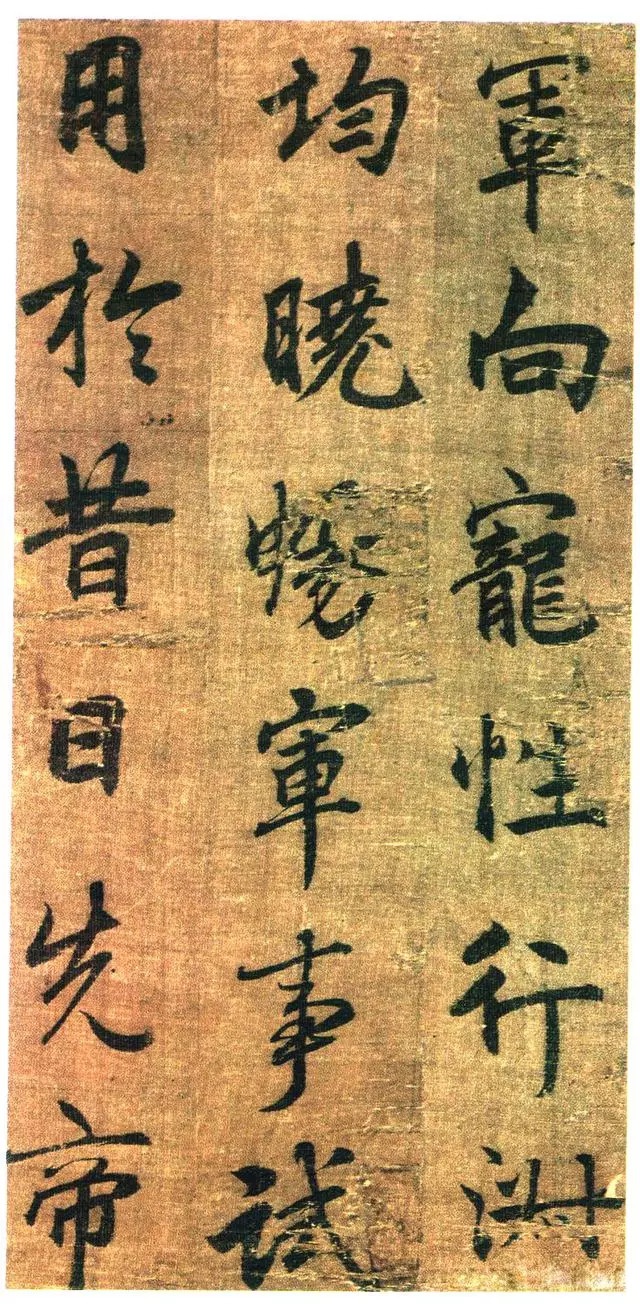 軍向寵性行淑
均曉暢軍事試
用於昔日先帝